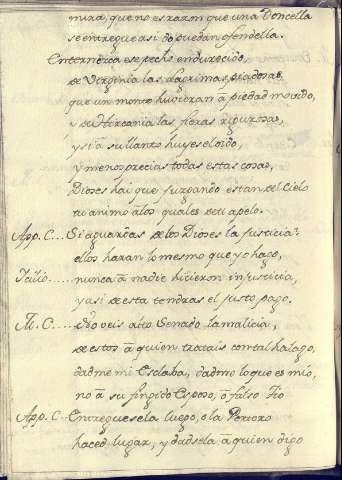 mira, que no es razon que una Doncella
se entregue asi do puedan ofendella.
Enternezca ese pecho endurecido,
de Virginia las lagrimas piadosas,
que un monte huvieran â piedad movido,
y de Hircania las fieras rigurosas,
y si â su llanto huyes el oido,
y menosprecias todas estas cosas,
Dioses hai que juzgando estan del Cielo
tu animo â los quales de ti apelo.
App. C.... Si aguardas de los Dioses la justicia
ellos haran lo mesmo que yo hago,
Icilio..... nunca â nadie hicieron injusticia,
y asi de esta tendras el justo pago.
M. C..... No veis alto Senado la malicia,
de estos â quien tratais con tal halago,
dadme mi Esclaba, dadme lo que es mio,
no â su fingido Esposo, ô falso Tio
App. C.. Entreguesela luego, ola Portero
haced lugar, y dadsela â quien digo